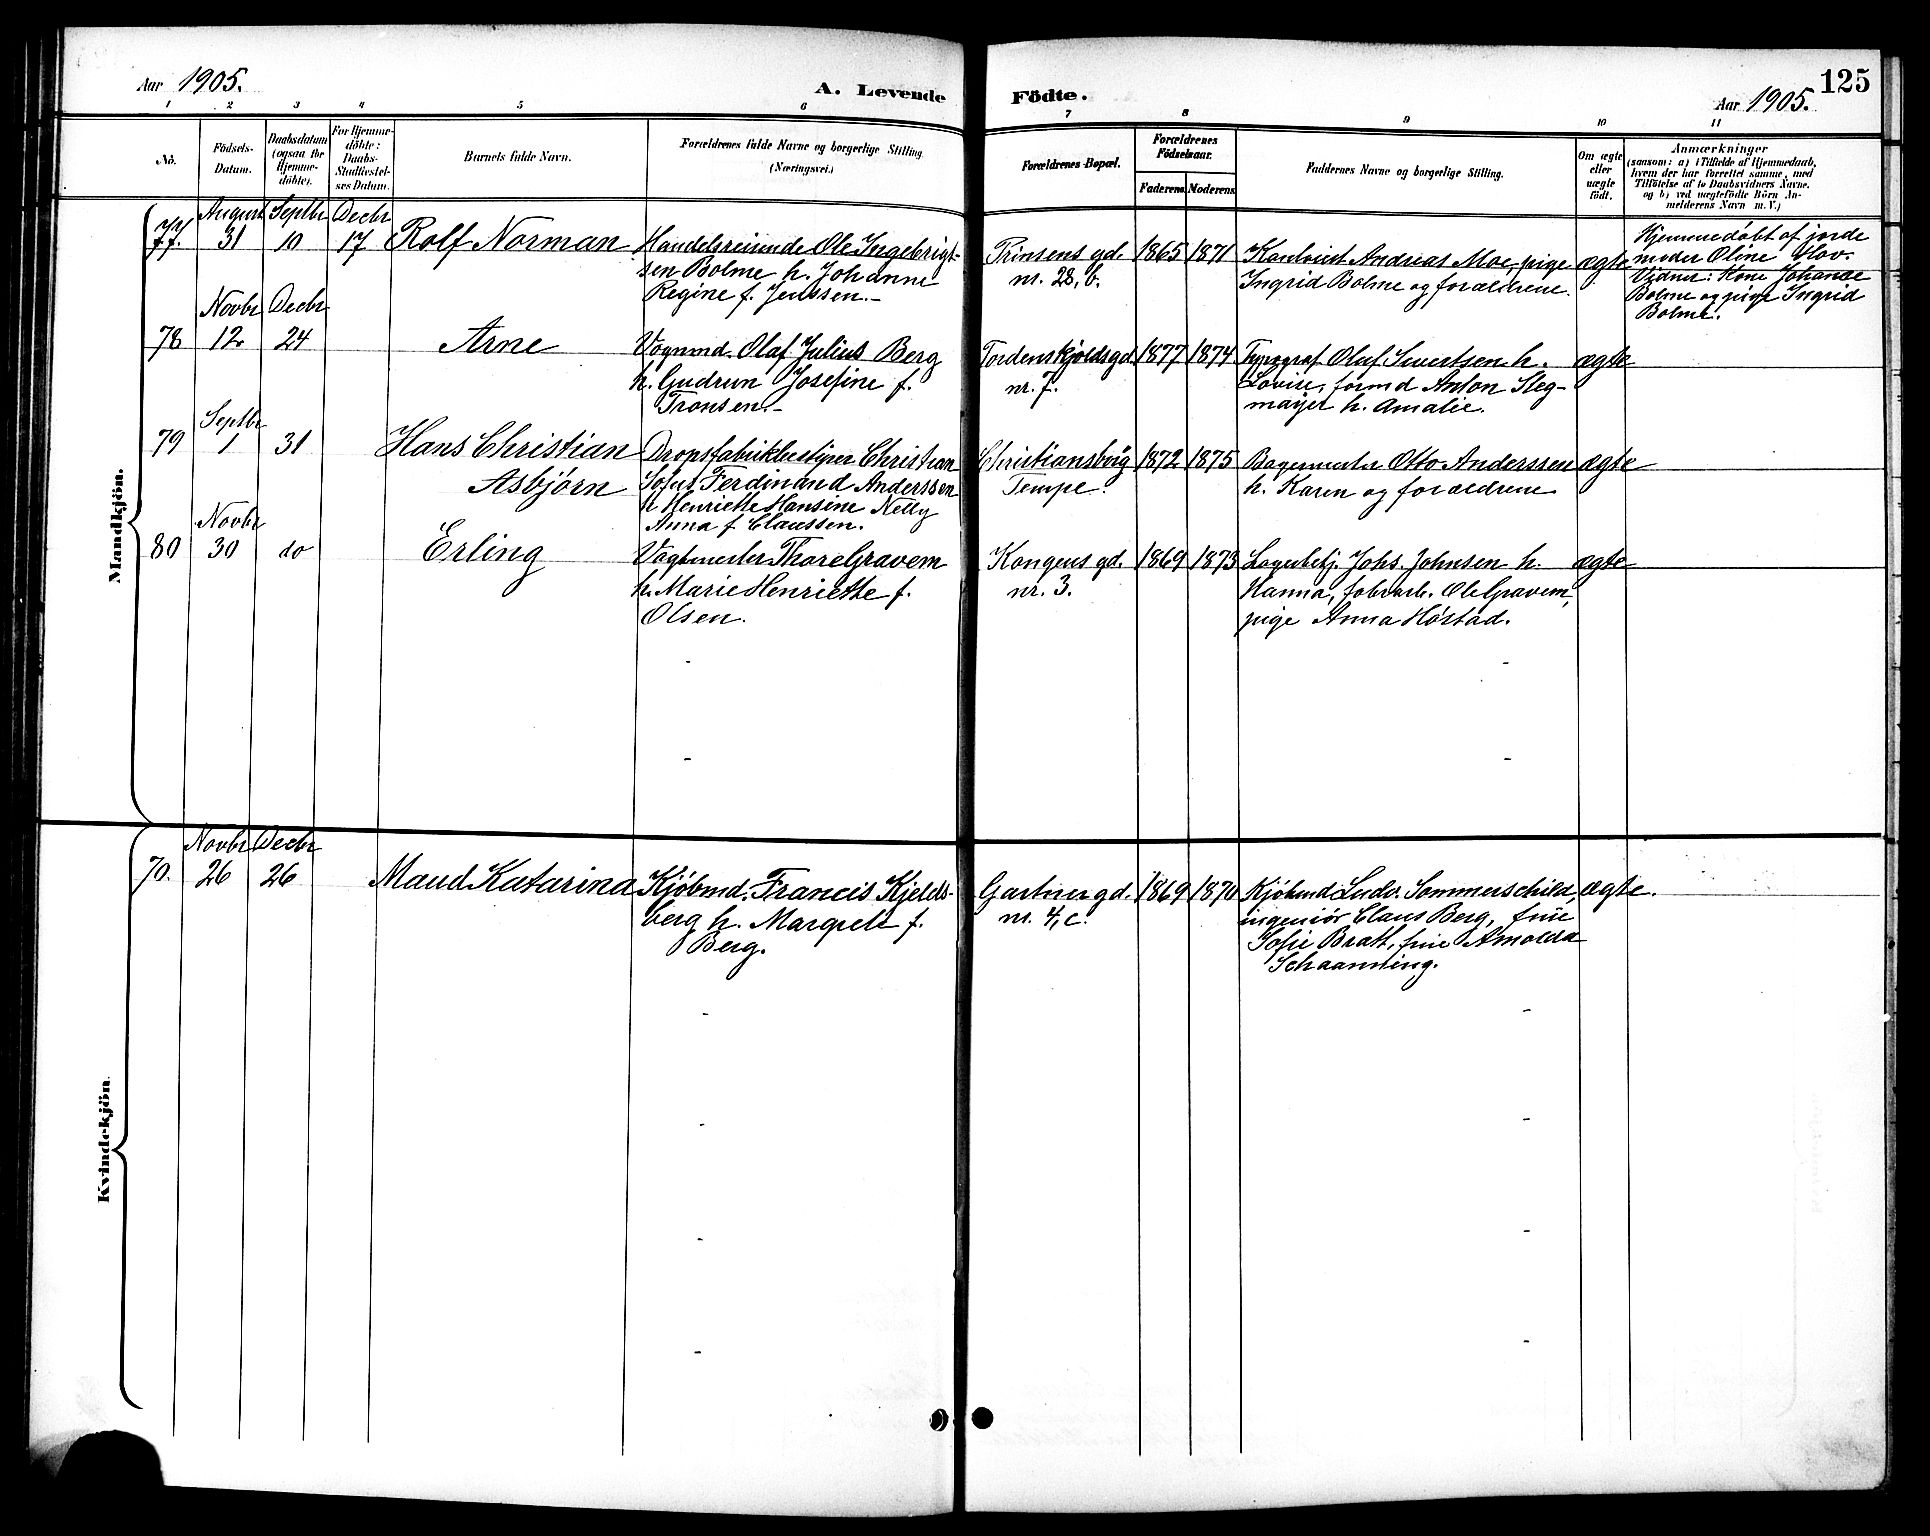 Aar 1905.
A. Levende
Födte.
Aar 1905.
125
1 2 3 4 5 6 7 8 9 10 11
No.
Födsels-
Datum.
Daabsdatum
(ogsaa for
Hjemme-
döbte).
For Hjemme-
döbte:
Daabs-
Stadfæstel-
ses Datum.
Barnets fulde Navn.
Forældrenes fulde Navne og borgerlige Stilling
(Næringsvei.)
Forældrenes Bopæl.
Forældrenes
Födselsaar.
Faderens. Moderens.
Faddernes Navne og borgerlige Stilling.
Om ægte
eller
uægte
födt.
Anmærkninger
(saasom: a) i Tilfælde af Hjemmedaab,
hvem der har forrettet samme, med
Tilföielse af to Daabsvidners Navne.
og b) ved uægtefödte Börn An-
melderens Navn m. V.)
Mandkjön.
77. August 31 Septbr 10 Decbr 17
Rolf Norman
Handelsreisende Ole Ingebrigt-
sen Bolme h. Johanne
Regine f. Jenssen.
Prinsens gd.
nr. 28, b.
1865 1871
Andreas Moe, pige
Ingrid Bolme og forældrene.
ægte
Hjemmedøbt af jorde
moder Oline Hov.
Vidner: Kone Johanne
Bolme og pige Ingrid
Bolme.
78 Novbr 12 Decbr 24
Arne
Vognmd. Olaf Julius Berg
h. Gudrun Josefine f.
Tronsen.
Tordenskjolds gd
nr. 7.
1877 1874
Typograf Oluf Sivertsen h.
Lovise, formd Anton Steg-
mayer h. Amalie.
ægte
79 Septbr 1 31
Hans Christian
Asbjörn
Dropsfabrikbestyrer Christian
Sofus Ferdinand Anderssen
h Henriette Hansine Nelly
Anna f Claussen.
Christiansborg
Tempe.
1872 1875
Bagermester Otto Anderssen
h. Karen og forældrene
ægte
80 Novbr 30 do
Erling
Vagtmester Thore Gravem
h. Marie Henriette f.
Olsen.
Kongens gd.
nr. 3.
1869 1873
Lagerbetj. Johs. Johnsen h.
Hanna, fabrarb. Ole Gravem,
pige Anna Høstad.
ægte
Kvindekjön.
70. Novbr 26 Decbr 26
Maud Katarina
Kjøbmd. Francis Kjelds-
berg h. Margrete f.
Berg.
Gartner gd.
nr. 4, c.
1869 1870
Kjøbmd Ludv. Sommerschild,
ingeniør Claus Berg, frue
Sofie Bratt, frue Arnolda
Schaanning.
ægte.